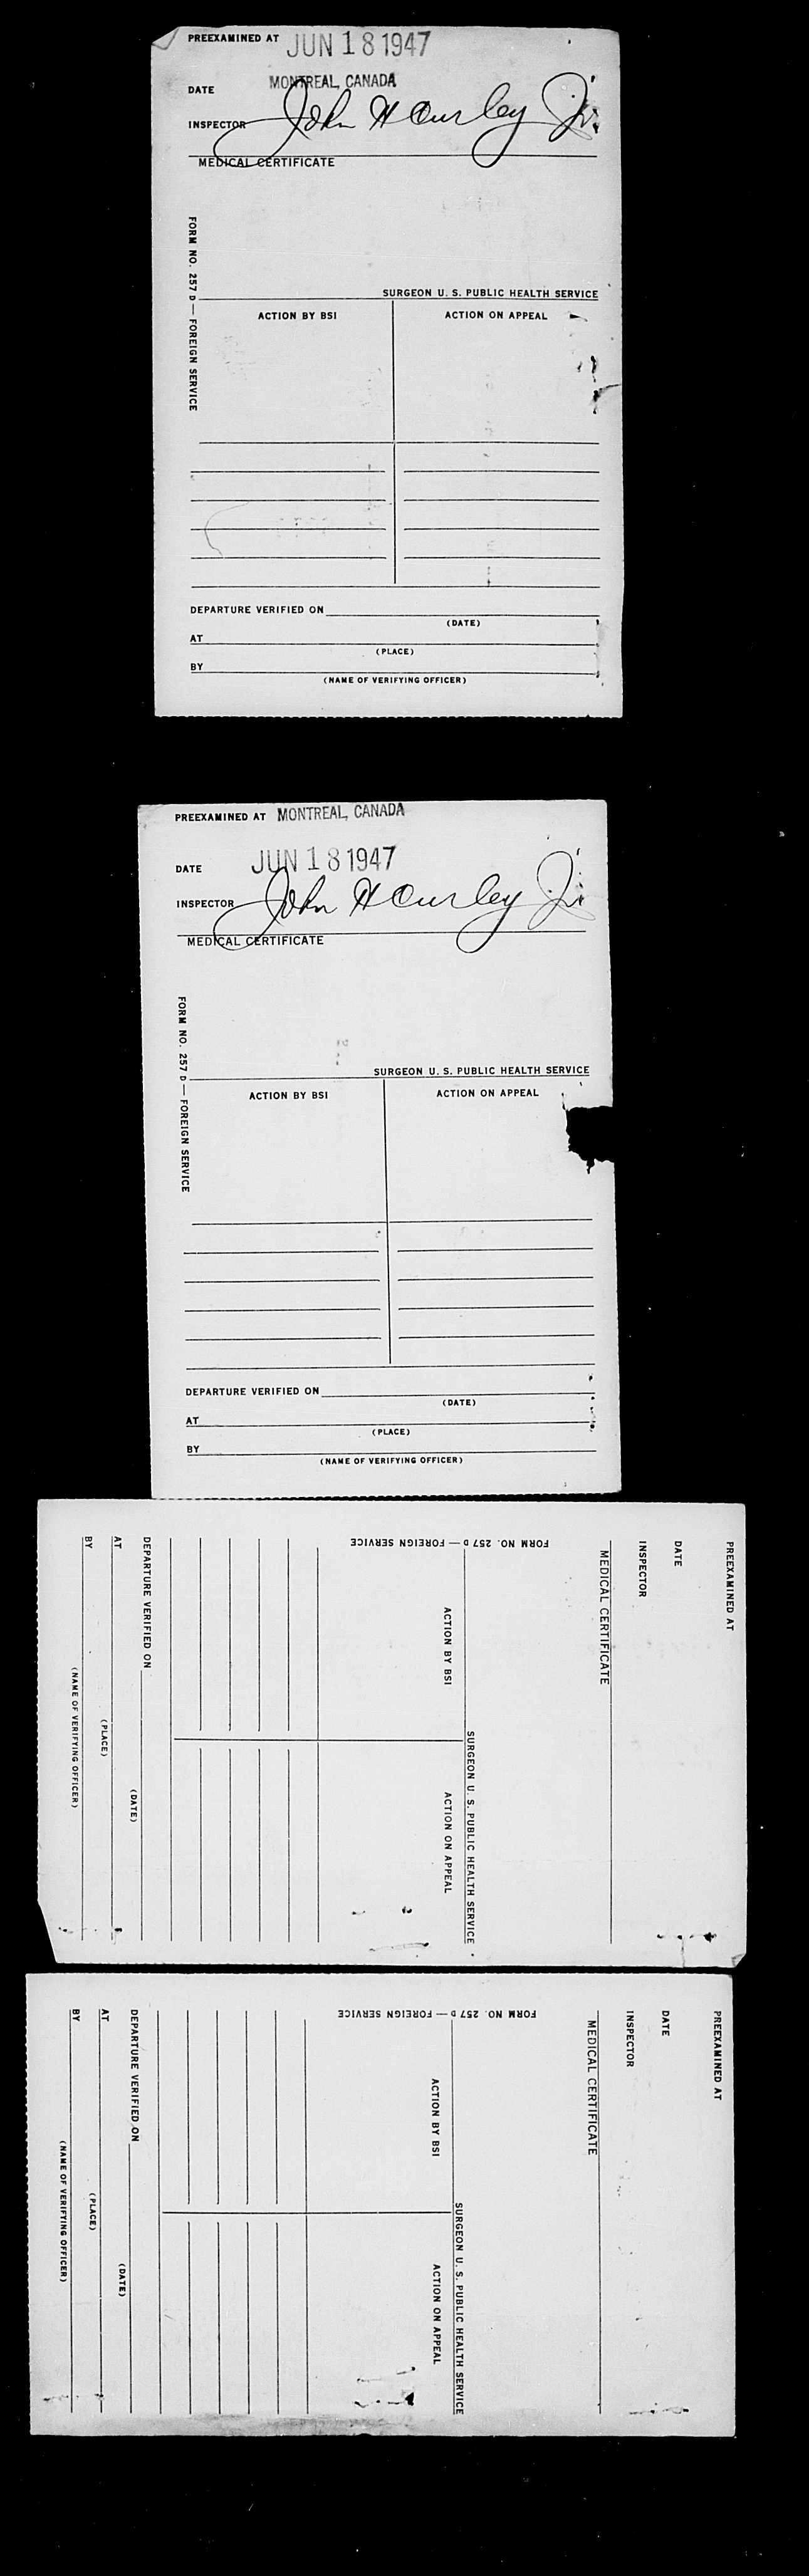 PREEXAMINED AT JUN 18 1947
DATE MONTREAL, CANADA
INSPECTOR John H Curley Jr.
MEDICAL CERTIFICATE
FORM NO. 257 D — FOREIGN SERVICE
SURGEON U. S. PUBLIC HEALTH SERVICE
ACTION BY BSI ACTION ON APPEAL
DEPARTURE VERIFIED ON
(DATE)
AT
(PLACE)
BY
(NAME OF VERIFYING OFFICER)
PREEXAMINED AT MONTREAL, CANADA
DATE JUN 18 1947
INSPECTOR John H Curley Jr
MEDICAL CERTIFICATE
FORM NO. 257 D — FOREIGN SERVICE
SURGEON U. S. PUBLIC HEALTH SERVICE
ACTION BY BSI ACTION ON APPEAL
DEPARTURE VERIFIED ON
(DATE)
AT
(PLACE)
BY
(NAME OF VERIFYING OFFICER)
PREEXAMINED AT
DATE
INSPECTOR
MEDICAL CERTIFICATE
FORM NO. 257 D — FOREIGN SERVICE
SURGEON U. S. PUBLIC HEALTH SERVICE
ACTION BY BSI ACTION ON APPEAL
DEPARTURE VERIFIED ON
(DATE)
AT
(PLACE)
BY
(NAME OF VERIFYING OFFICER)
PREEXAMINED AT
DATE
INSPECTOR
MEDICAL CERTIFICATE
FORM NO. 257 D — FOREIGN SERVICE
SURGEON U. S. PUBLIC HEALTH SERVICE
ACTION BY BSI ACTION ON APPEAL
DEPARTURE VERIFIED ON
(DATE)
AT
(PLACE)
BY
(NAME OF VERIFYING OFFICER)